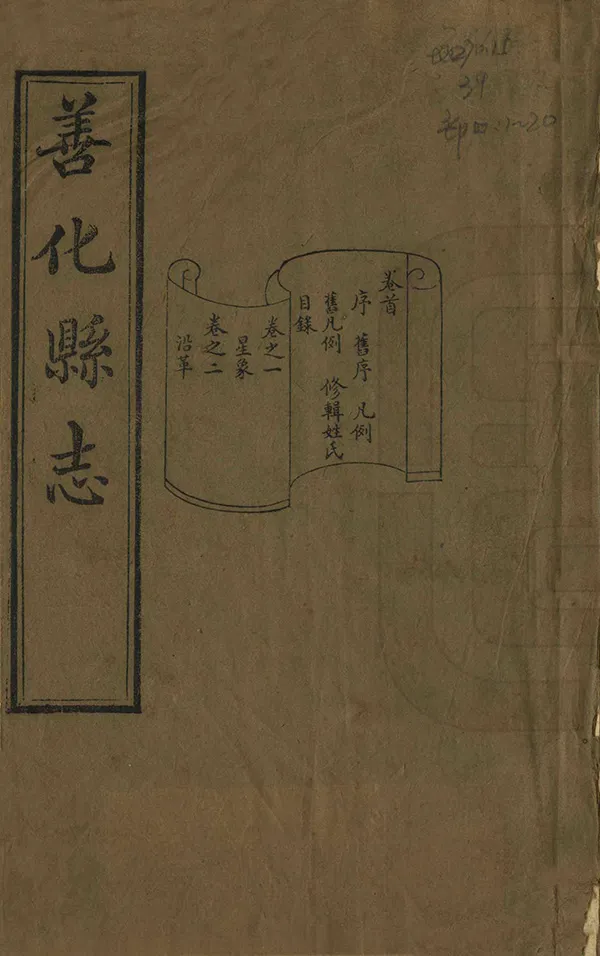 善化縣志
卷首
序 舊序 凡例
舊凡例 修輯姓氏
目錄
卷之一
星象
卷之二
沿革
39